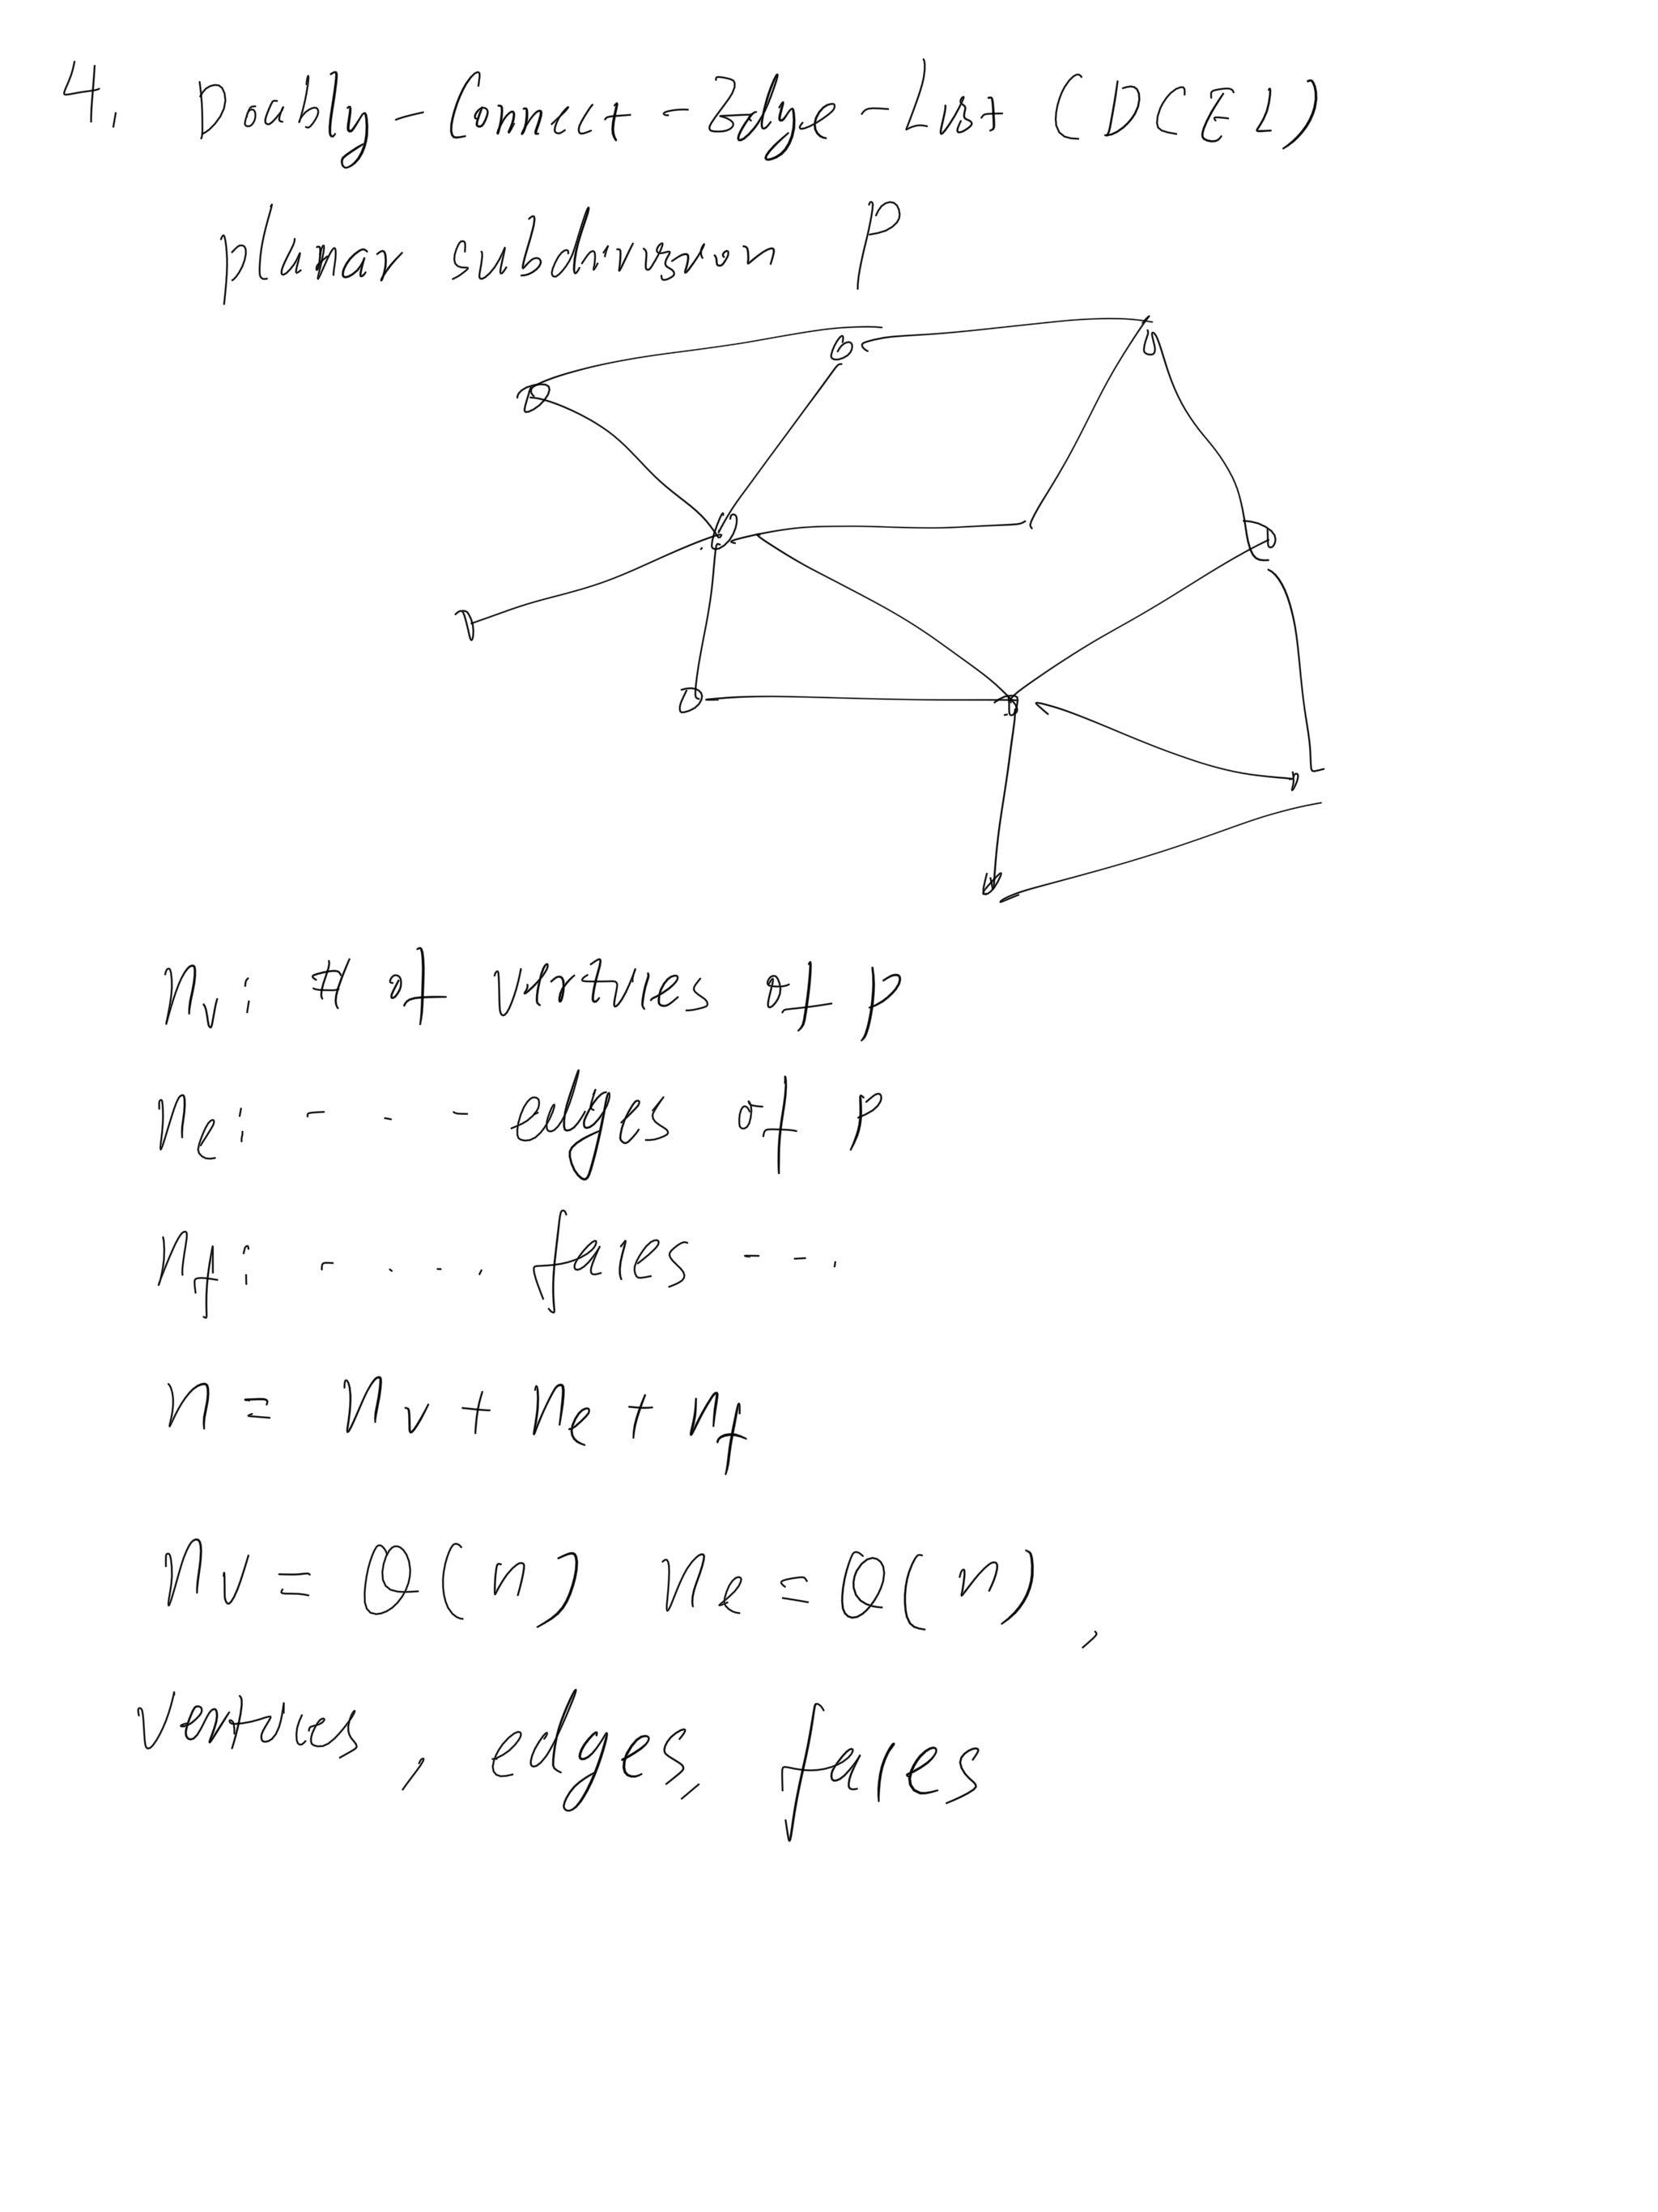 4. Doubly-Connect-Edge-List (DCEL)
planar subdivision P
n_v: # of vertices of P
n_e: - - - edges of P
n_f: - - - - faces - - -
n = n_v + n_e + n_f
n_v = Θ(n) n_e = Θ(n),
vertices, edges, faces